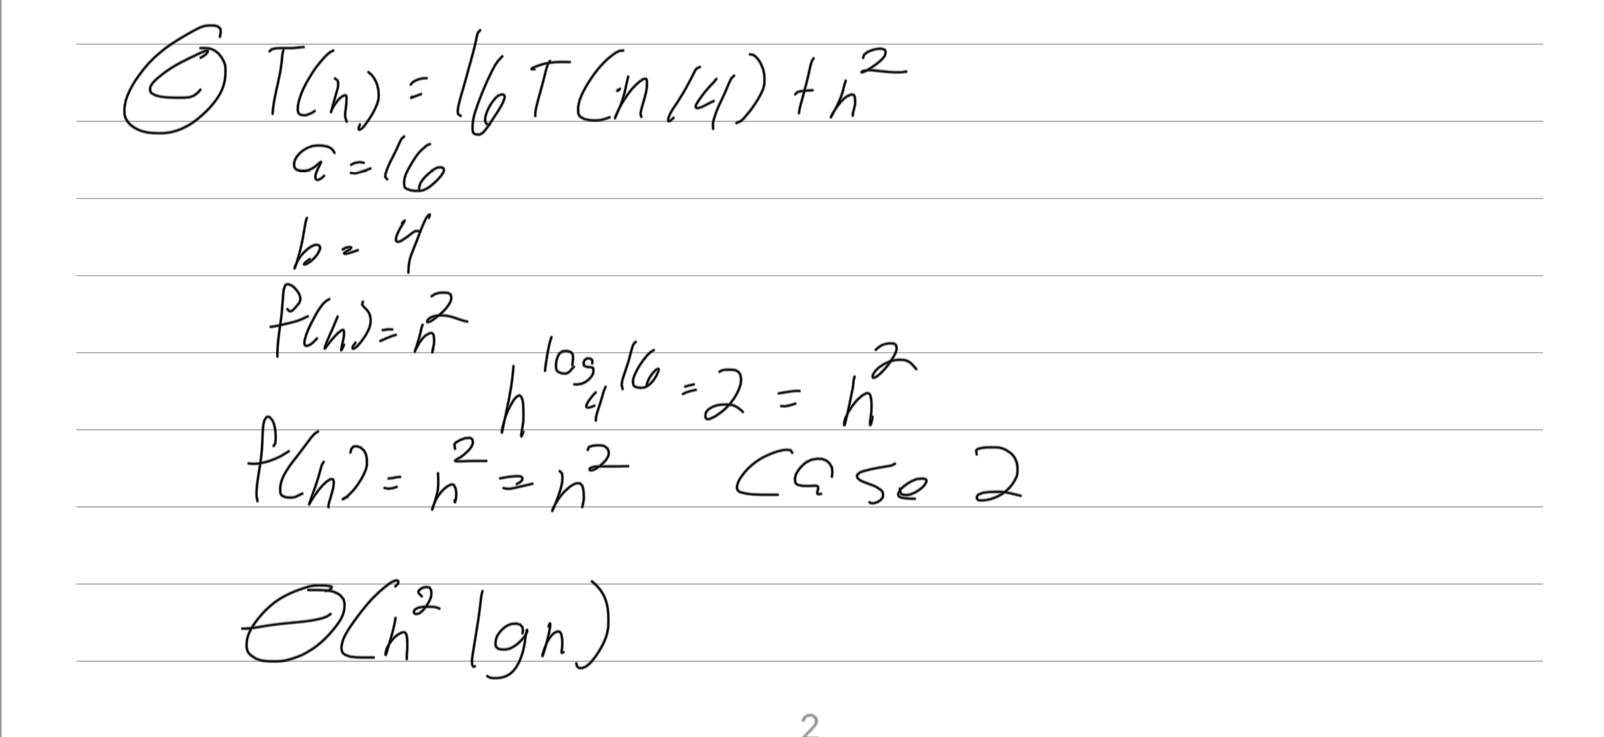 Ⓒ T(n) = 16T(n/4) + n²
a = 16
b = 4
f(n) = n²
n^log₄16 = 2 = n²
f(n) = n² = n² Case 2
Θ(n² lgn)
2